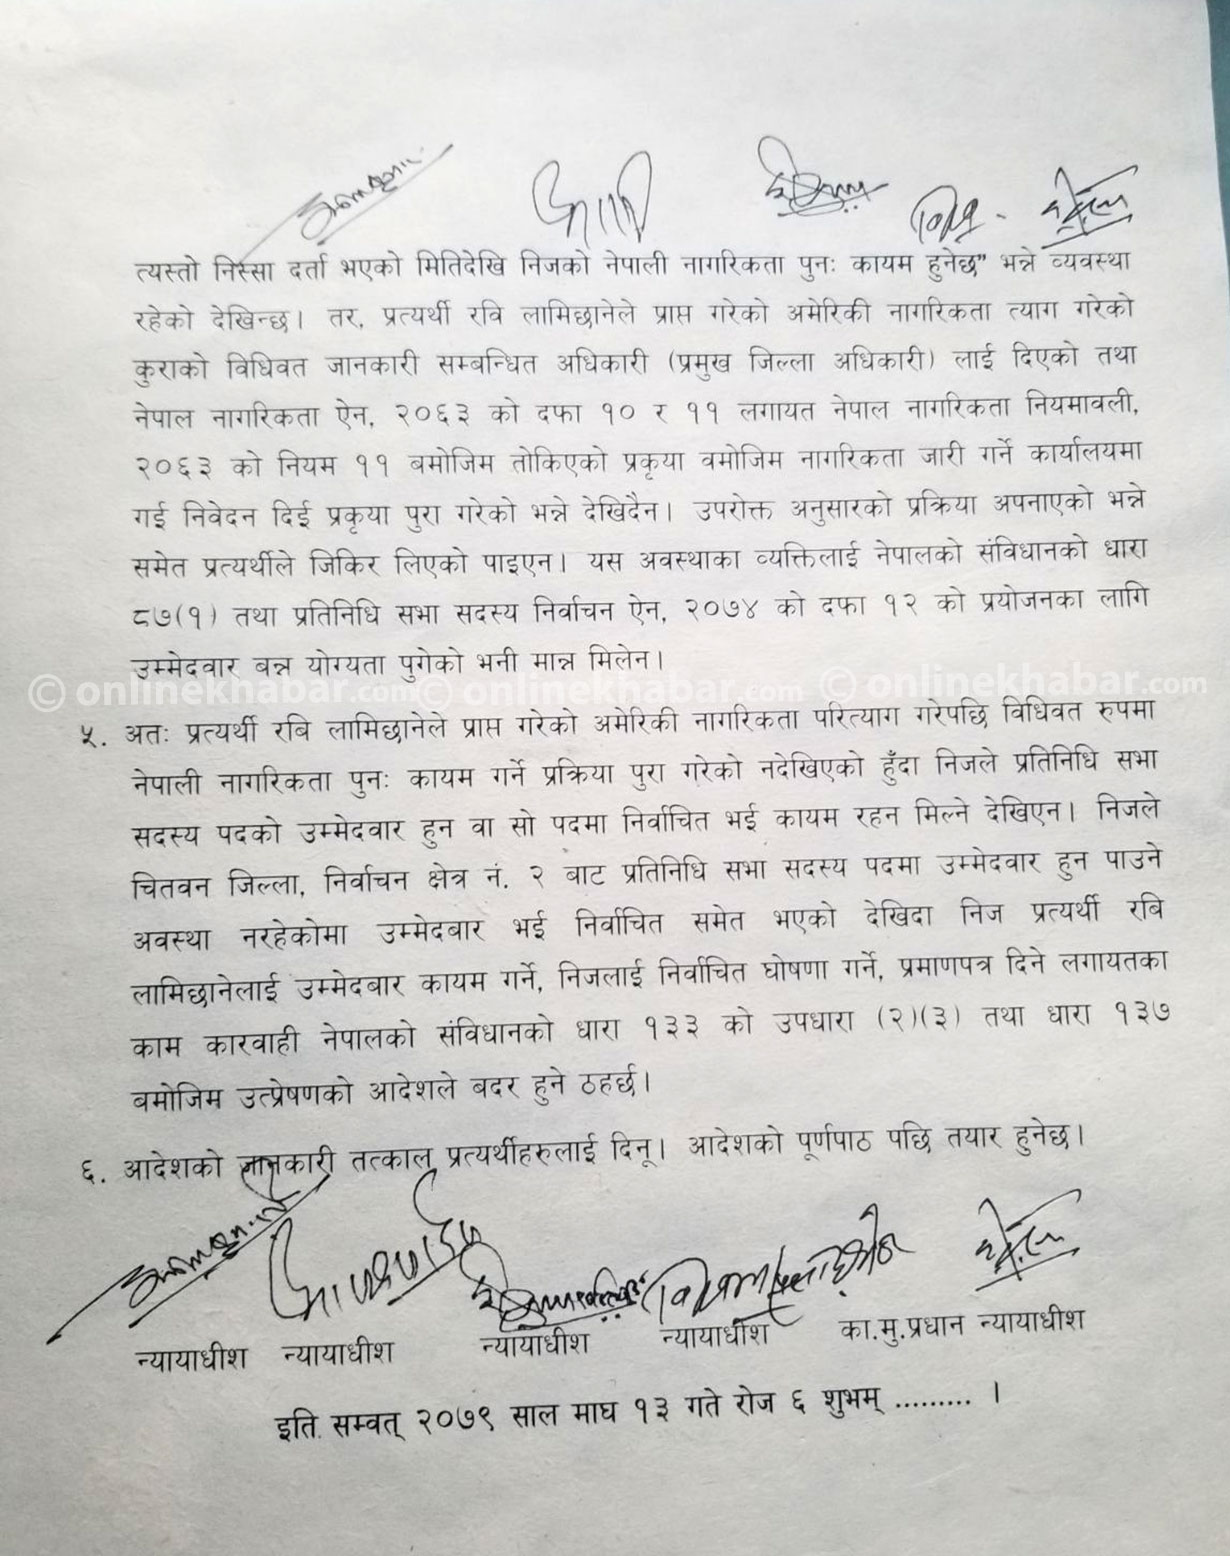 त्यस्तो निस्सा दर्ता भएको मितिदेखि निजको नेपाली नागरिकता पुनः कायम हुनेछ" भन्ने व्यवस्था
रहेको देखिन्छ। तर, प्रत्यर्थी रवि लामिछानेले प्राप्त गरेको अमेरिकी नागरिकता त्याग गरेको
कुराको विधिवत जानकारी सम्बन्धित अधिकारी (प्रमुख जिल्ला अधिकारी) लाई दिएको तथा
नेपाल नागरिकता ऐन, २०६३ को दफा १० र ११ लगायत नेपाल नागरिकता नियमावली,
२०६३ को नियम ११ बमोजिम तोकिएको प्रकृया वमोजिम नागरिकता जारी गर्ने कार्यालयमा
गई निवेदन दिई प्रकृया पुरा गरेको भन्ने देखिदैन। उपरोक्त अनुसारको प्रक्रिया अपनाएको भन्ने
समेत प्रत्यर्थीले जिकिर लिएको पाइएन। यस अवस्थाका व्यक्तिलाई नेपालको संविधानको धारा
८७(१) तथा प्रतिनिधि सभा सदस्य निर्वाचन ऐन, २०७४ को दफा १२ को प्रयोजनका लागि
उम्मेदवार बन्न योग्यता पुगेको भनी मान्न मिलेन।
© onlinekhabar.com © onlinekhabar.com © onlinekhabar.com
५. अतः प्रत्यर्थी रबि लामिछानेले प्राप्त गरेको अमेरिकी नागरिकता परित्याग गरेपछि विधिवत रुपमा
नेपाली नागरिकता पुनः कायम गर्ने प्रक्रिया पुरा गरेको नदेखिएको हुँदा निजले प्रतिनिधि सभा
सदस्य पदको उम्मेदवार हुन वा सो पदमा निर्वाचित भई कायम रहन मिल्ने देखिएन। निजले
चितवन जिल्ला, निर्वाचन क्षेत्र नं. २ बाट प्रतिनिधि सभा सदस्य पदमा उम्मेदवार हुन पाउने
अवस्था नरहेकोमा उम्मेदबार भई निर्वाचित समेत भएको देखिदा निज प्रत्यर्थी रबि
लामिछानेलाई उम्मेदबार कायम गर्ने, निजलाई निर्वाचित घोषणा गर्ने, प्रमाणपत्र दिने लगायतका
काम कारवाही नेपालको संविधानको धारा १३३ को उपधारा (२)(३) तथा धारा १३७
बमोजिम उत्प्रेषणको आदेशले बदर हुने ठहर्छ।
६. आदेशको जानकारी तत्काल प्रत्यर्थीहरुलाई दिनू। आदेशको पूर्णपाठ पछि तयार हुनेछ।
न्यायाधीश न्यायाधीश न्यायाधीश न्यायाधीश का.मु.प्रधान न्यायाधीश
इति सम्वत् २०७९ साल माघ १३ गते रोज ६ शुभम् ......... ।